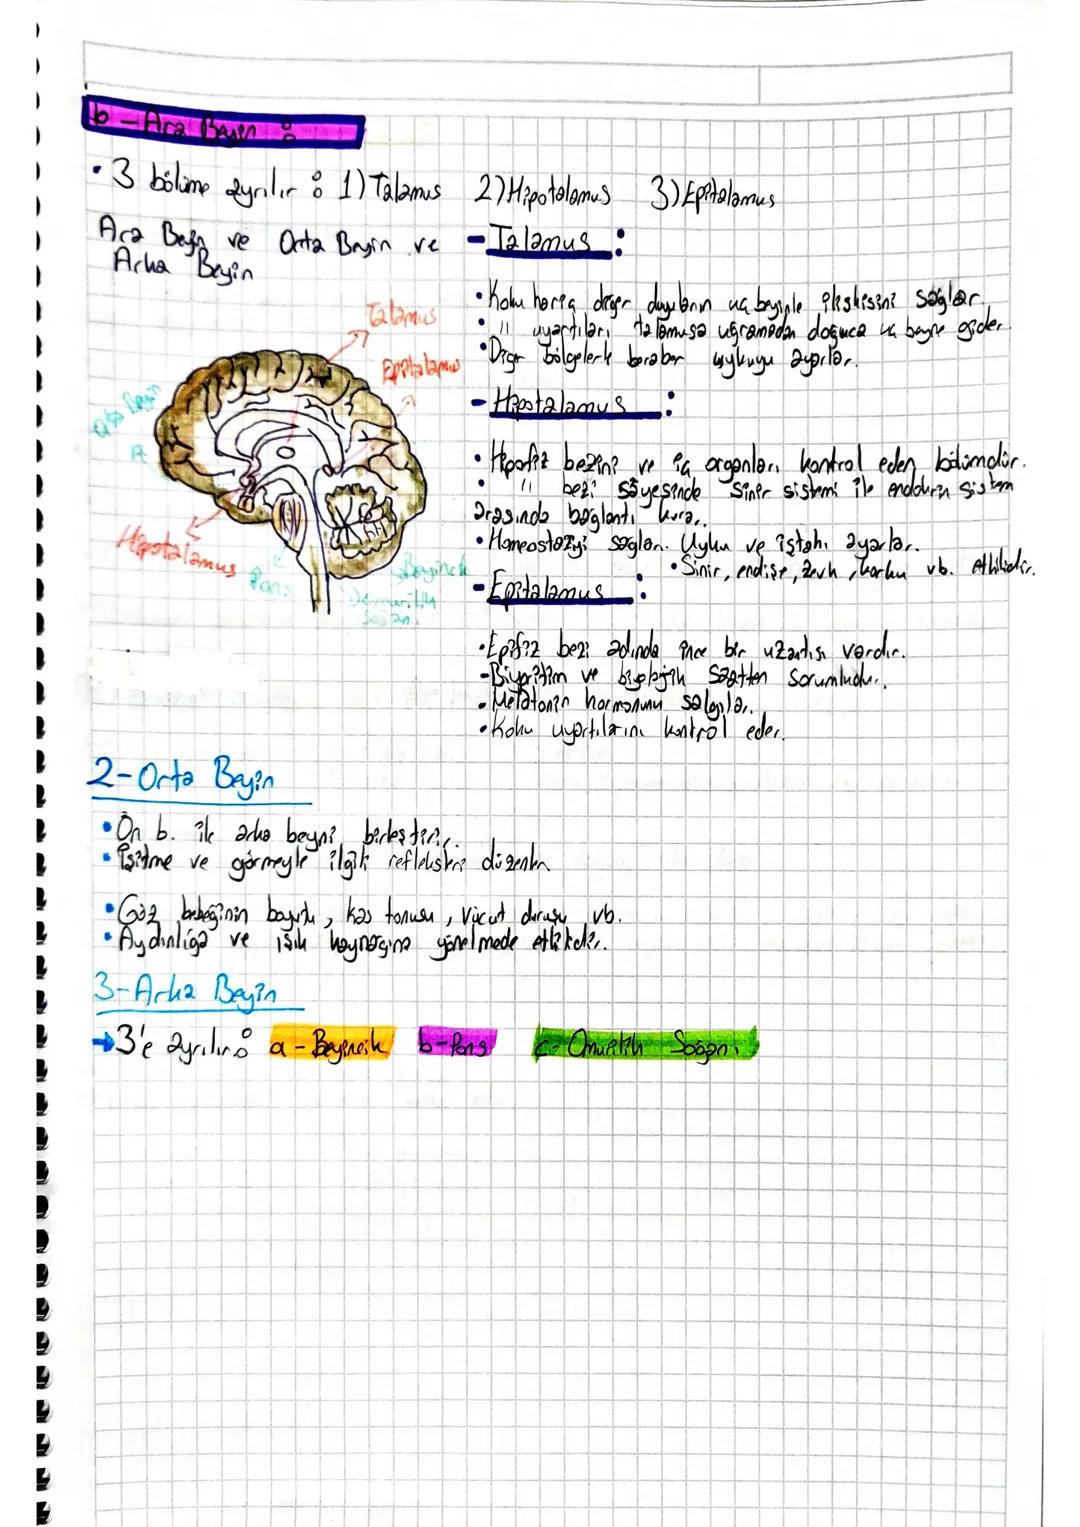 b - Ara Beyin :
• 3 bölüme ayrılır : 1) Talamus 2) Hipotalamus 3) Epitalamus
Ara Beyin ve Orta Beyin ve
Arka Beyin
Talamus
Epitalamus
Orta Beyin
Hipotalamus
Pons
Beyincik
Omurilik
Soğanı
- Talamus :
• Koku hariç diğer duyuların uç beyinle ilişkisini sağlar.
• " uyartıları talamusa uğramadan doğuca uç beyne gider.
• Diğer bölgelerle beraber uykuyu ayarlar.
- Hipotalamus :
• Hipofiz bezini ve iç organları kontrol eden bölümdür.
• " bezi sayesinde sinir sistemi ile endokrin sistem
arasında bağlantı kurar.
• Homeostaziyi sağlar. Uyku ve iştahı ayarlar.
• Sinir, endişe, zevk, korku vb. etkilidir.
- Epitalamus :
• Epifiz bezi adında ince bir uzantısı vardır.
- Biyoritim ve biyolojik saatten sorumludur.
• Melatonin hormonunu salgılar.
• Koku uyartılarını kontrol eder.
2- Orta Beyin
• Ön b. ile arka beyni birleştirir.
• İşitme ve görmeyle ilgili refleksleri düzenler
• Göz bebeğinin boyutu, kas tonusu, vücut duruşu vb.
• Aydınlığa ve ışık kaynağına yönelmede etkilidir.
3- Arka Beyin
→ 3'e ayrılır : a - Beyincik b - Pons c - Omurilik Soğanı